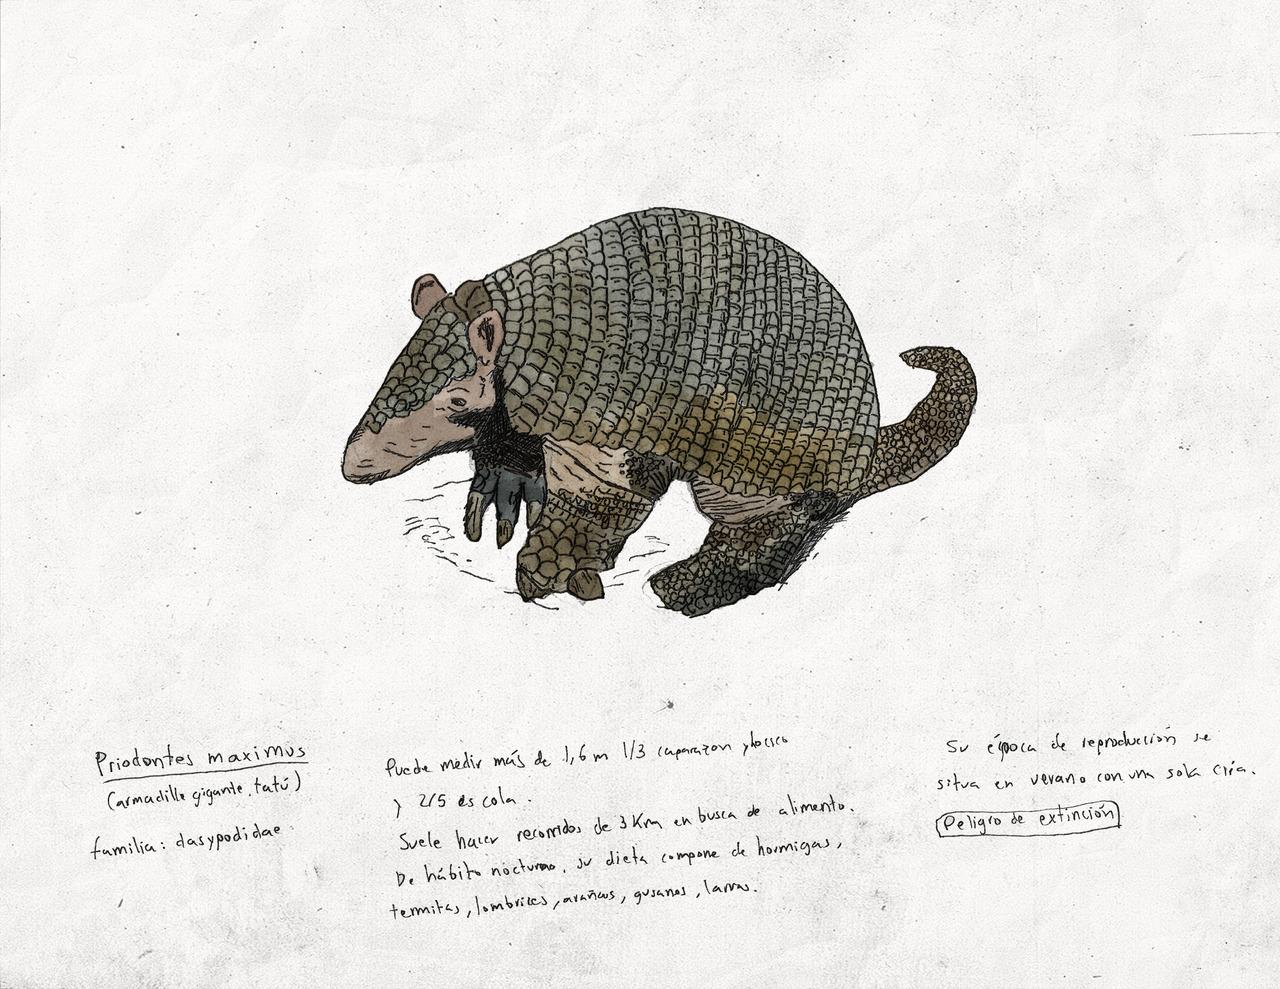 Priodontes maximus
(armadillo gigante, tatú)
familia: dasypodidae
Puede medir más de 1,6 m 1/3 caparazon y hocico
y 2/5 es cola.
Suele hacer recorridos de 3Km en busca de alimento.
De hábito nocturno, su dieta compone de hormigas,
termitas, lombrices, arañas, gusanos, larvas.
Su época de reproducción se
situa en verano con una sola cría.
Peligro de extinción